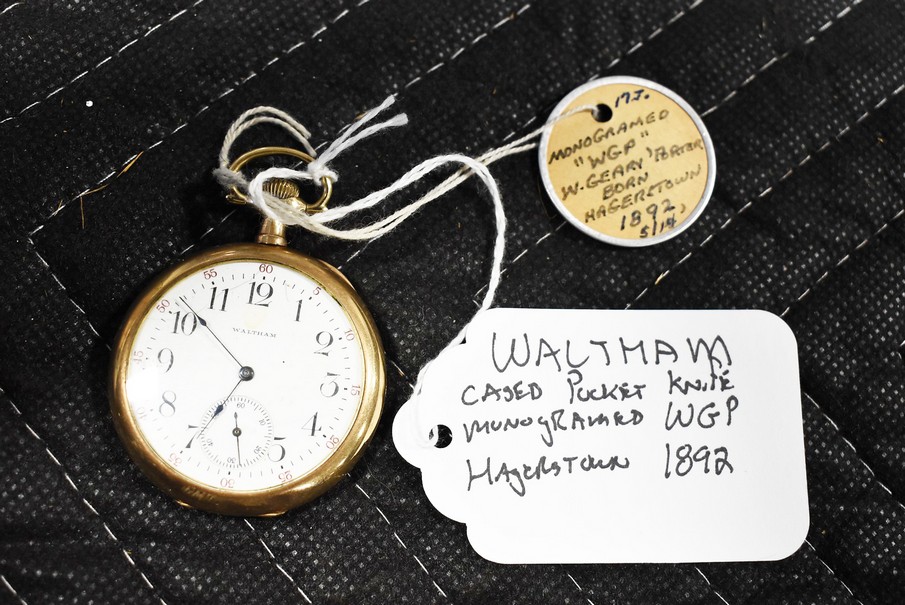 17J.
MONOGRAMED
"WGP"
W. GEARY PORTER
BORN
HAGERSTOWN
1892
5/14
WALTHAM
CASED POCKET KNIFE
MONOGRAMED WGP
HAGERSTOWN 1892
WALTHAM
60
5
10
15
20
25
30
35
40
45
50
55
12
1
2
3
4
5
7
8
9
10
11
60